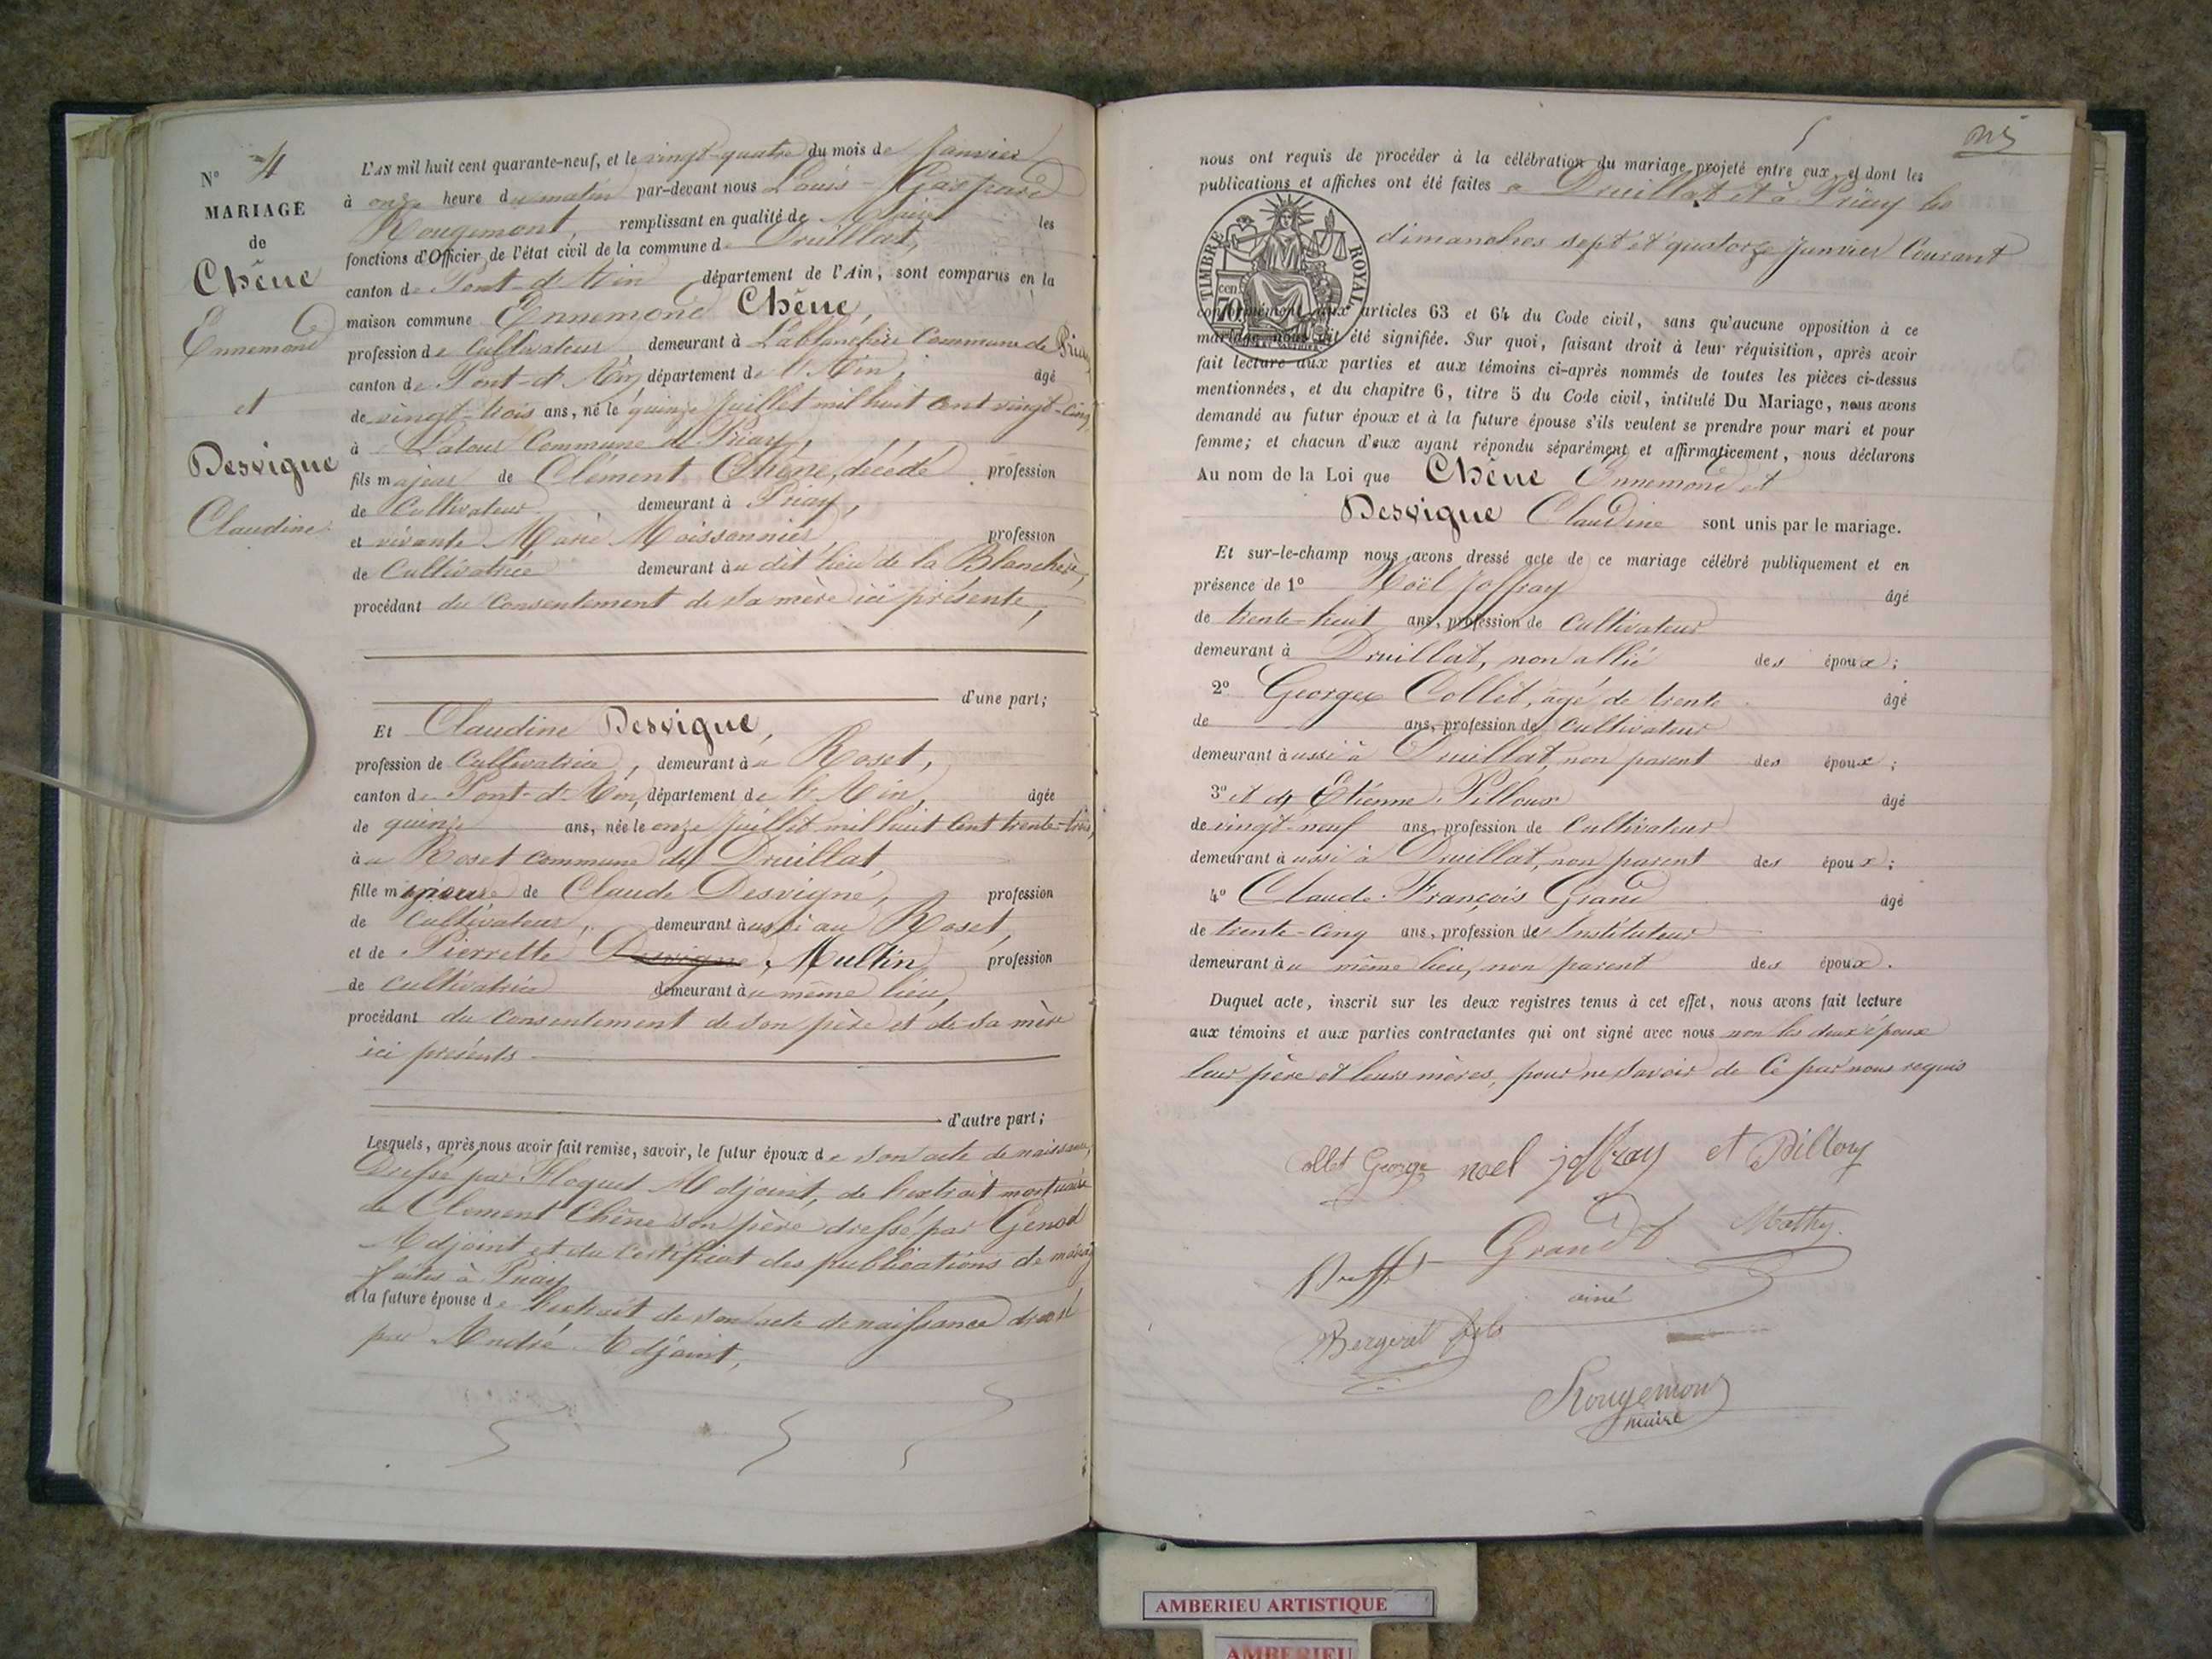 N° 4
MARIAGE
de
Chêne
Ennemond
et
Desvigne
Claudine
L'AN mil huit cent quarante-neuf, et le vingt-quatre du mois de Janvier
à onze heure du matin par-devant nous Louis-Gaspard
Rougemont, remplissant en qualité de Maire les
fonctions d'Officier de l'état civil de la commune de Druillat,
canton de Pont-d'Ain département de l'Ain, sont comparus en la
maison commune Ennemond Chêne,
profession de Cultivateur demeurant à Lablanchère Commune de Priay
canton de Pont-d'Ain, département de l'Ain, âgé
de vingt-trois ans, né le quinze Juillet mil huit cent vingt-cinq
à Latour Commune de Priay,
fils majeur de Clément Chêne, décédé profession
de Cultivateur demeurant à Priay,
et vivante Marie Moissonnier, profession
de Cultivatrice demeurant au dit lieu de la Blanchère,
procédant du consentement de sa mère ici présente,
d'une part;
Et Claudine Desvigne,
profession de Cultivatrice, demeurant au Roset,
canton de Pont-d'Ain, département de l'Ain, âgée
de quinze ans, née le onze Juillet mil huit cent trente-trois,
au Roset commune de Druillat,
fille mineure de Claude Desvigne, profession
de Cultivateur, demeurant aussi au Roset,
et de Pierrette Desvigne, Multin, profession
de cultivatrice demeurant au même lieu,
procédant du consentement de son père et de sa mère
ici présents
d'autre part;
Lesquels, après nous avoir fait remise, savoir, le futur époux de son acte de naissance,
Dressé par Floquet Adjoint, de l'extrait mortuaire
de Clément Chêne son père dressé par Genod
Adjoint et du certificat des publications de mariage
faites à Priay
et la future épouse de l'extrait de son acte de naissance dressé
par André Adjoint,
5
nous ont requis de procéder à la célébration du mariage projeté entre eux, et dont les
publications et affiches ont été faites à Druillat et à Priay les
dimanches sept et quatorze Janvier Courant
TIMBRE ROYAL
70 cen.
conformément aux articles 63 et 64 du Code civil, sans qu'aucune opposition à ce
mariage nous ait été signifiée. Sur quoi, faisant droit à leur réquisition, après avoir
fait lecture aux parties et aux témoins ci-après nommés de toutes les pièces ci-dessus
mentionnées, et du chapitre 6, titre 5 du Code civil, intitulé Du Mariage, nous avons
demandé au futur époux et à la future épouse s'ils veulent se prendre pour mari et pour
femme; et chacun d'eux ayant répondu séparément et affirmativement, nous déclarons
Au nom de la Loi que Chêne Ennemond et
Desvigne Claudine sont unis par le mariage.
Et sur-le-champ nous avons dressé acte de ce mariage célébré publiquement et en
présence de 1° Noël Joffray âgé
de trente-huit ans, profession de Cultivateur
demeurant à Druillat, non allié des époux;
2° Georges Collet, âgé de trente âgé
de ans, profession de Cultivateur
demeurant aussi à Druillat, non parent des époux;
3° et de Etienne Pilloux âgé
de vingt-neuf ans, profession de Cultivateur
demeurant aussi à Druillat, non parent des époux;
4° Claude-François Grand âgé
de trente-cinq ans, profession de Instituteur
demeurant au même lieu, non parent des époux.
Duquel acte, inscrit sur les deux registres tenus à cet effet, nous avons fait lecture
aux témoins et aux parties contractantes qui ont signé avec nous non les deux époux
leur père et leurs mères, pour ne savoir de ce par nous requis
Collet George noel joffray et Pilloux
Grand Mathy
ainé
Bergeret fils
Rougemont
maire
AMBERIEU ARTISTIQUE
AMBERIEU